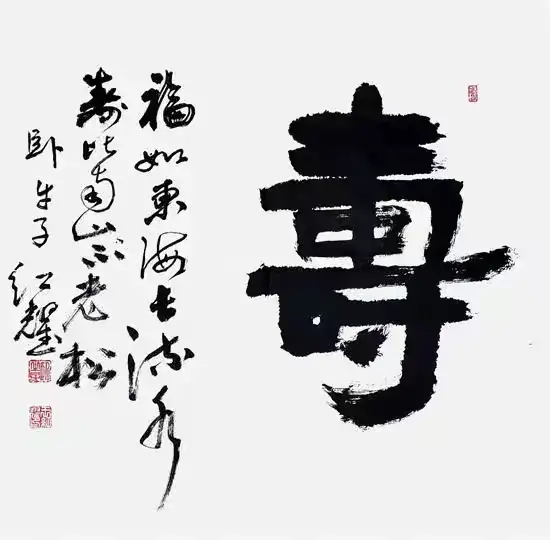 壽
福如東海長流水
寿比南山不老松
卧牛子红耀